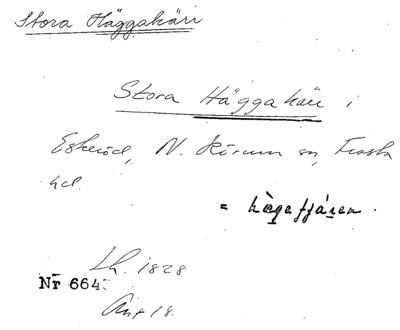 Stora Häggakärr
Stora Häggakärr i
Eskeröd, N. Rörum sn, Frosta
hd.
= hàgafjáren.
Lh. 1828
Nr 664.
Ant 18.